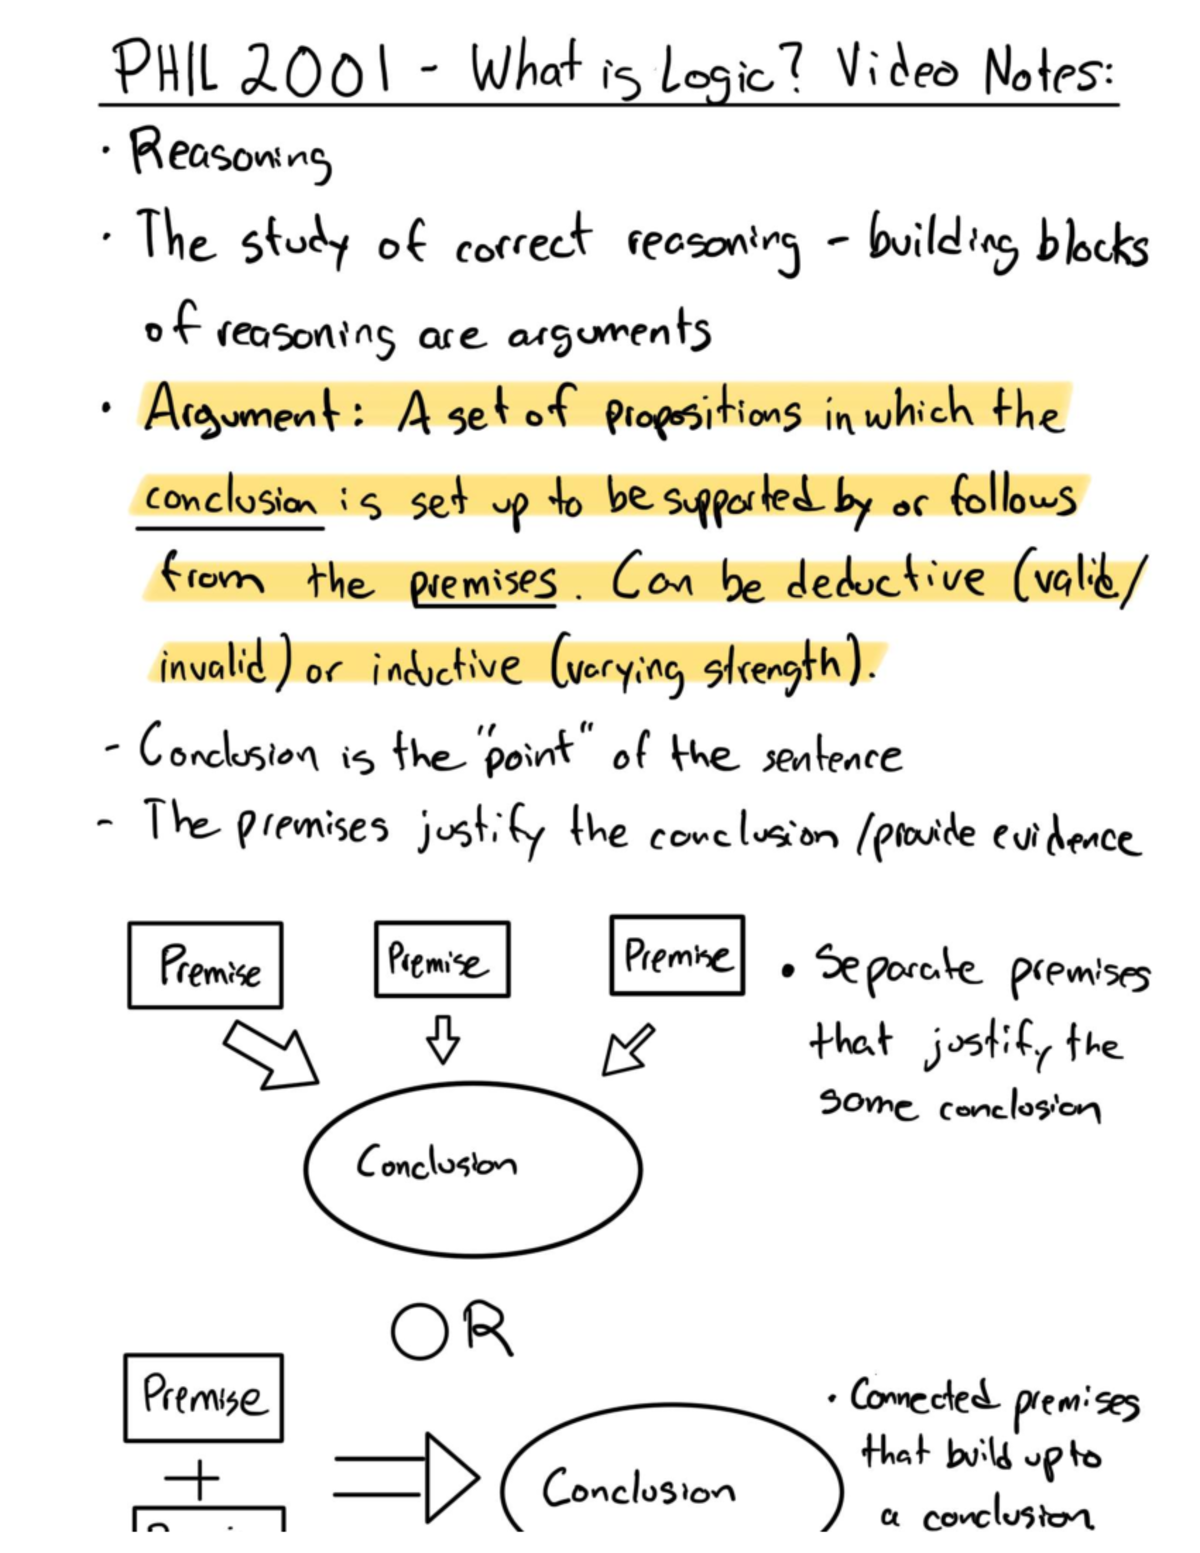 PHIL 2001 - What is Logic? Video Notes:
· Reasoning
· The study of correct reasoning - building blocks
of reasoning are arguments
· Argument: A set of propositions in which the
conclusion is set up to be supported by or follows
from the premises. Can be deductive (valid/
invalid) or inductive (varying strength).
- Conclusion is the "point" of the sentence
- The premises justify the conclusion/provide evidence
Premise
Premise
Premise
• Separate premises
that justify the
same conclusion
Conclusion
OR
Premise
+
Conclusion
· Connected premises
that build up to
a conclusion.